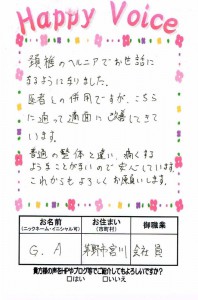 Happy Voice
頚椎のヘルニアでお世話に
なるようになりました。
医者との併用ですが、こちら
に通って適面に改善してき
ています。
普通の整体と違い、痛くする
ようなことがないので安心しています。
これからもよろしくお願いします。
お名前
(ニックネーム・イニシャル可)
お住まい
(市町村)
御職業
G. A
茅野市宮川
会社員
貴方様の声をHPやブログ等でご紹介してもよろしいですか?
□はい □いいえ